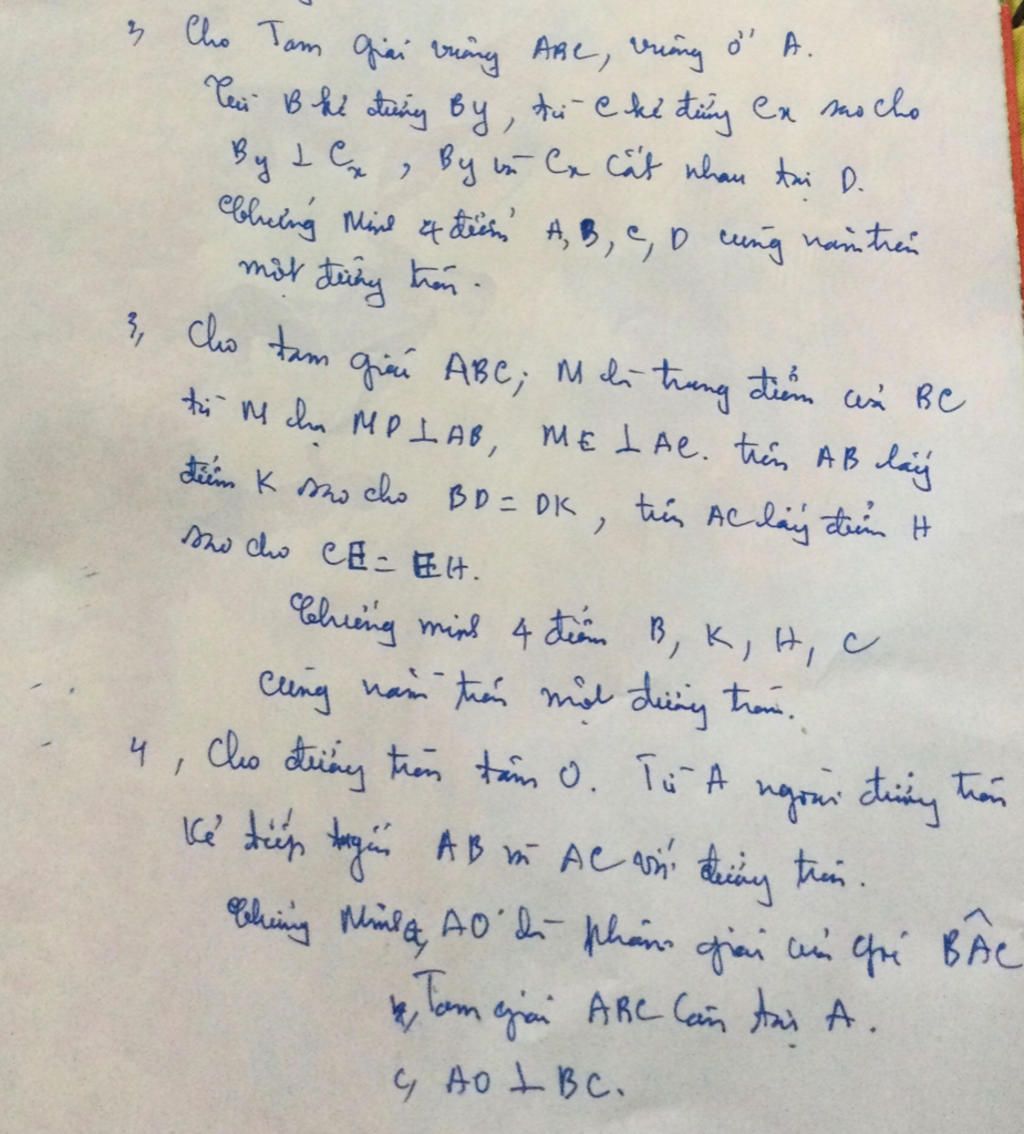 3, Cho Tam giác vuông ABC, vuông ở A.
Từ B kẻ đường By, từ C kẻ đường Cx sao cho
By ⊥ Cx, By và Cx cắt nhau tại D.
Chứng Minh 4 điểm A, B, C, D cùng nằm trên
một đường tròn.
3, Cho tam giác ABC; M là trung điểm của BC
từ M hạ MD ⊥ AB, ME ⊥ AC. trên AB lấy
điểm K sao cho BD = DK, trên AC lấy điểm H
sao cho CE = EH.
Chứng minh 4 điểm B, K, H, C
cùng nằm trên một đường tròn.
4, Cho đường tròn tâm O. Từ A ngoài đường tròn
Kẻ tiếp tuyến AB và AC với đường tròn.
Chứng Minh a, AO là phân giác của góc BÂC
b, Tam giác ABC Cân tại A.
c, AO ⊥ BC.